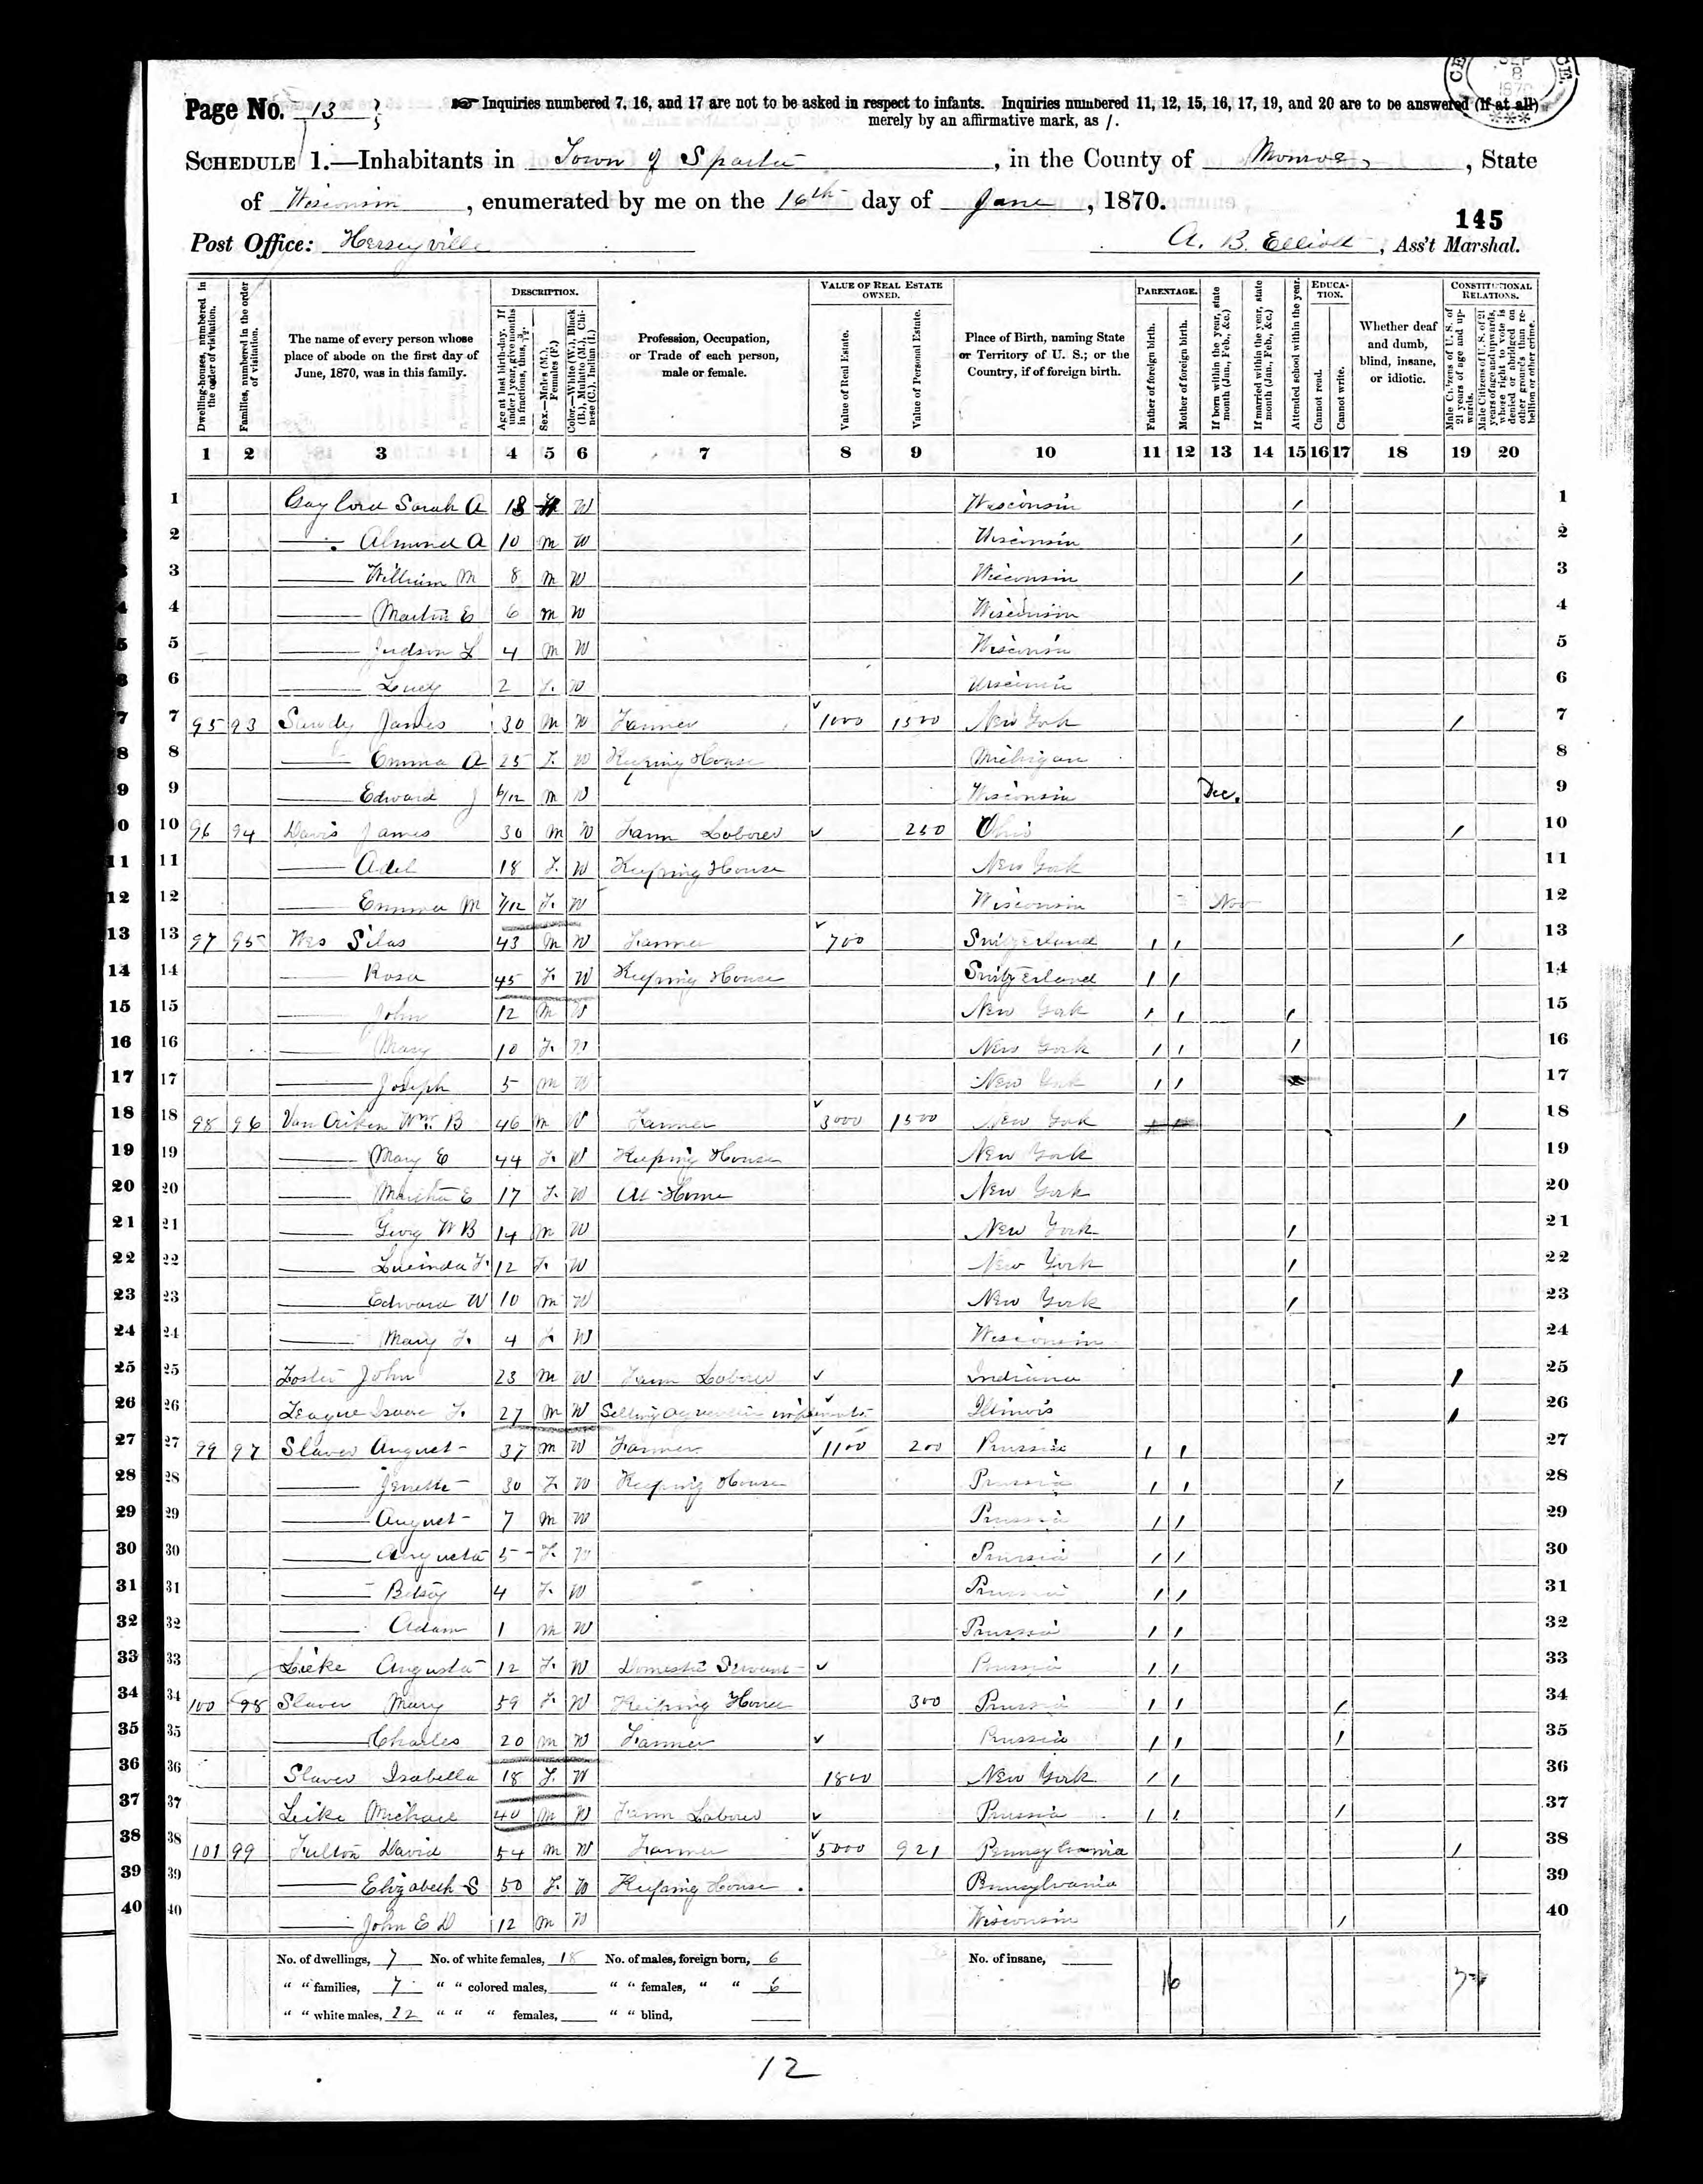 CE
SEP
8
1870
CE.
***
Page No. 13
☞ Inquiries numbered 7, 16, and 17 are not to be asked in respect to infants. Inquiries numbered 11, 12, 15, 16, 17, 19, and 20 are to be answered (if at all)
merely by an affirmative mark, as /.
SCHEDULE 1.—Inhabitants in Town of Sparta, in the County of Monroe, State
of Wisconsin, enumerated by me on the 16th day of June, 1870.
145
Post Office: Herseyville A. B. Elliott, Ass't Marshal.
Dwelling-houses, numbered in the order of visitation.
Families, numbered in the order of visitation.
The name of every person whose place of abode on the first day of June, 1870, was in this family.
DESCRIPTION.
Age at last birth-day. If under 1 year, give months in fractions, thus, 3/12.
Sex.—Males (M.), Females (F.)
Color.—White (W.), Black (B.), Mulatto (M.), Chinese (C.), Indian (I.)
Profession, Occupation, or Trade of each person, male or female.
VALUE OF REAL ESTATE OWNED.
Value of Real Estate.
Value of Personal Estate.
Place of Birth, naming State or Territory of U. S.; or the Country, if of foreign birth.
PARENTAGE.
Father of foreign birth.
Mother of foreign birth.
If born within the year, state month (Jan., Feb., &c.)
If married within the year, state month (Jan., Feb., &c.)
Attended school within the year.
EDUCATION.
Cannot read.
Cannot write.
Whether deaf and dumb, blind, insane, or idiotic.
CONSTITUTIONAL RELATIONS.
Male Citizens of U. S. of 21 years of age and upwards.
Male Citizens of U. S. of 21 years of age and upwards, whose right to vote is denied or abridged on other grounds than rebellion or other crime.
1 2 3 4 5 6 7 8 9 10 11 12 13 14 15 16 17 18 19 20
1 Gaylord Sarah A 13 F W Wisconsin / 1
2 — Almond A 10 M W Wisconsin / 2
3 — William M 8 M W Wisconsin / 3
4 — Martin E 6 M W Wisconsin 4
5 — Judson L 4 M W Wisconsin 5
6 — Lucy 2 F. W Wisconsin 6
7 95 93 James 30 M W Farmer 1000 1500 New York / 7
8 — Emma A 25 F. W Keeping House Michigan 8
9 — Edward J 6/12 M W Wisconsin Dec. 9
10 96 94 Davis James 30 M W Farm Laborer ✓ 250 Ohio / 10
11 — Adel 18 F. W Keeping House New York 11
12 — Emma M 7/12 F. W Wisconsin Nov 12
13 97 95 Silas 43 M W Farmer 700 Switzerland / / / 13
14 — Rosa 45 F. W Keeping House Switzerland / / 14
15 — John 12 M W New York / / / 15
16 — Mary 10 F. W New York / / / 16
17 — Joseph 5 M W New York / / 17
18 98 96 Van Wm. B 46 M W Farmer 3000 1500 New York / 18
19 — Mary E 44 F. W Keeping House New York 19
20 — Martha E 17 F. W At Home New York 20
21 — Georg W B 14 M W New York / 21
22 — Lucinda F. 12 F. W New York / 22
23 — Edward W 10 M W New York / 23
24 — Mary F. 4 F. W Wisconsin 24
25 Foster John 23 M W Farm Laborer ✓ Indiana / 25
26 Isaac F. 27 M W Selling Illinois / 26
27 99 97 Slaver August 37 M W Farmer 1100 200 Prussia / / 27
28 — Jenette 30 F. W Keeping House Prussia / / / 28
29 — August 7 M W Prussia / / 29
30 — Augusta 5 F. W Prussia / / 30
31 — Betsey 4 F. W Prussia / / 31
32 — Adam 1 M W Prussia / / 32
33 Leike Augusta 12 F. W Domestic Servant ✓ Prussia / / 33
34 100 98 Slaver Mary 59 F. W Keeping House 300 Prussia / / / 34
35 — Charles 20 M W Farmer ✓ Prussia / / / 35
36 Slaver Isabella 18 F. W 1800 New York / / 36
37 Leike Michael 40 M W Farm Laborer ✓ Prussia / / / 37
38 101 99 Fulton David 54 M W Farmer 5000 921 Pennsylvania / 38
39 — Elizabeth S 50 F. W Keeping House Pennsylvania 39
40 — John E D 12 M W Wisconsin / 40
No. of dwellings, 7 No. of white females, 18 No. of males, foreign born, 6 No. of insane,
" " families, 7 " " colored males, " " females, " " 6 16
" " white males, 22 " " " females, " " blind,
12